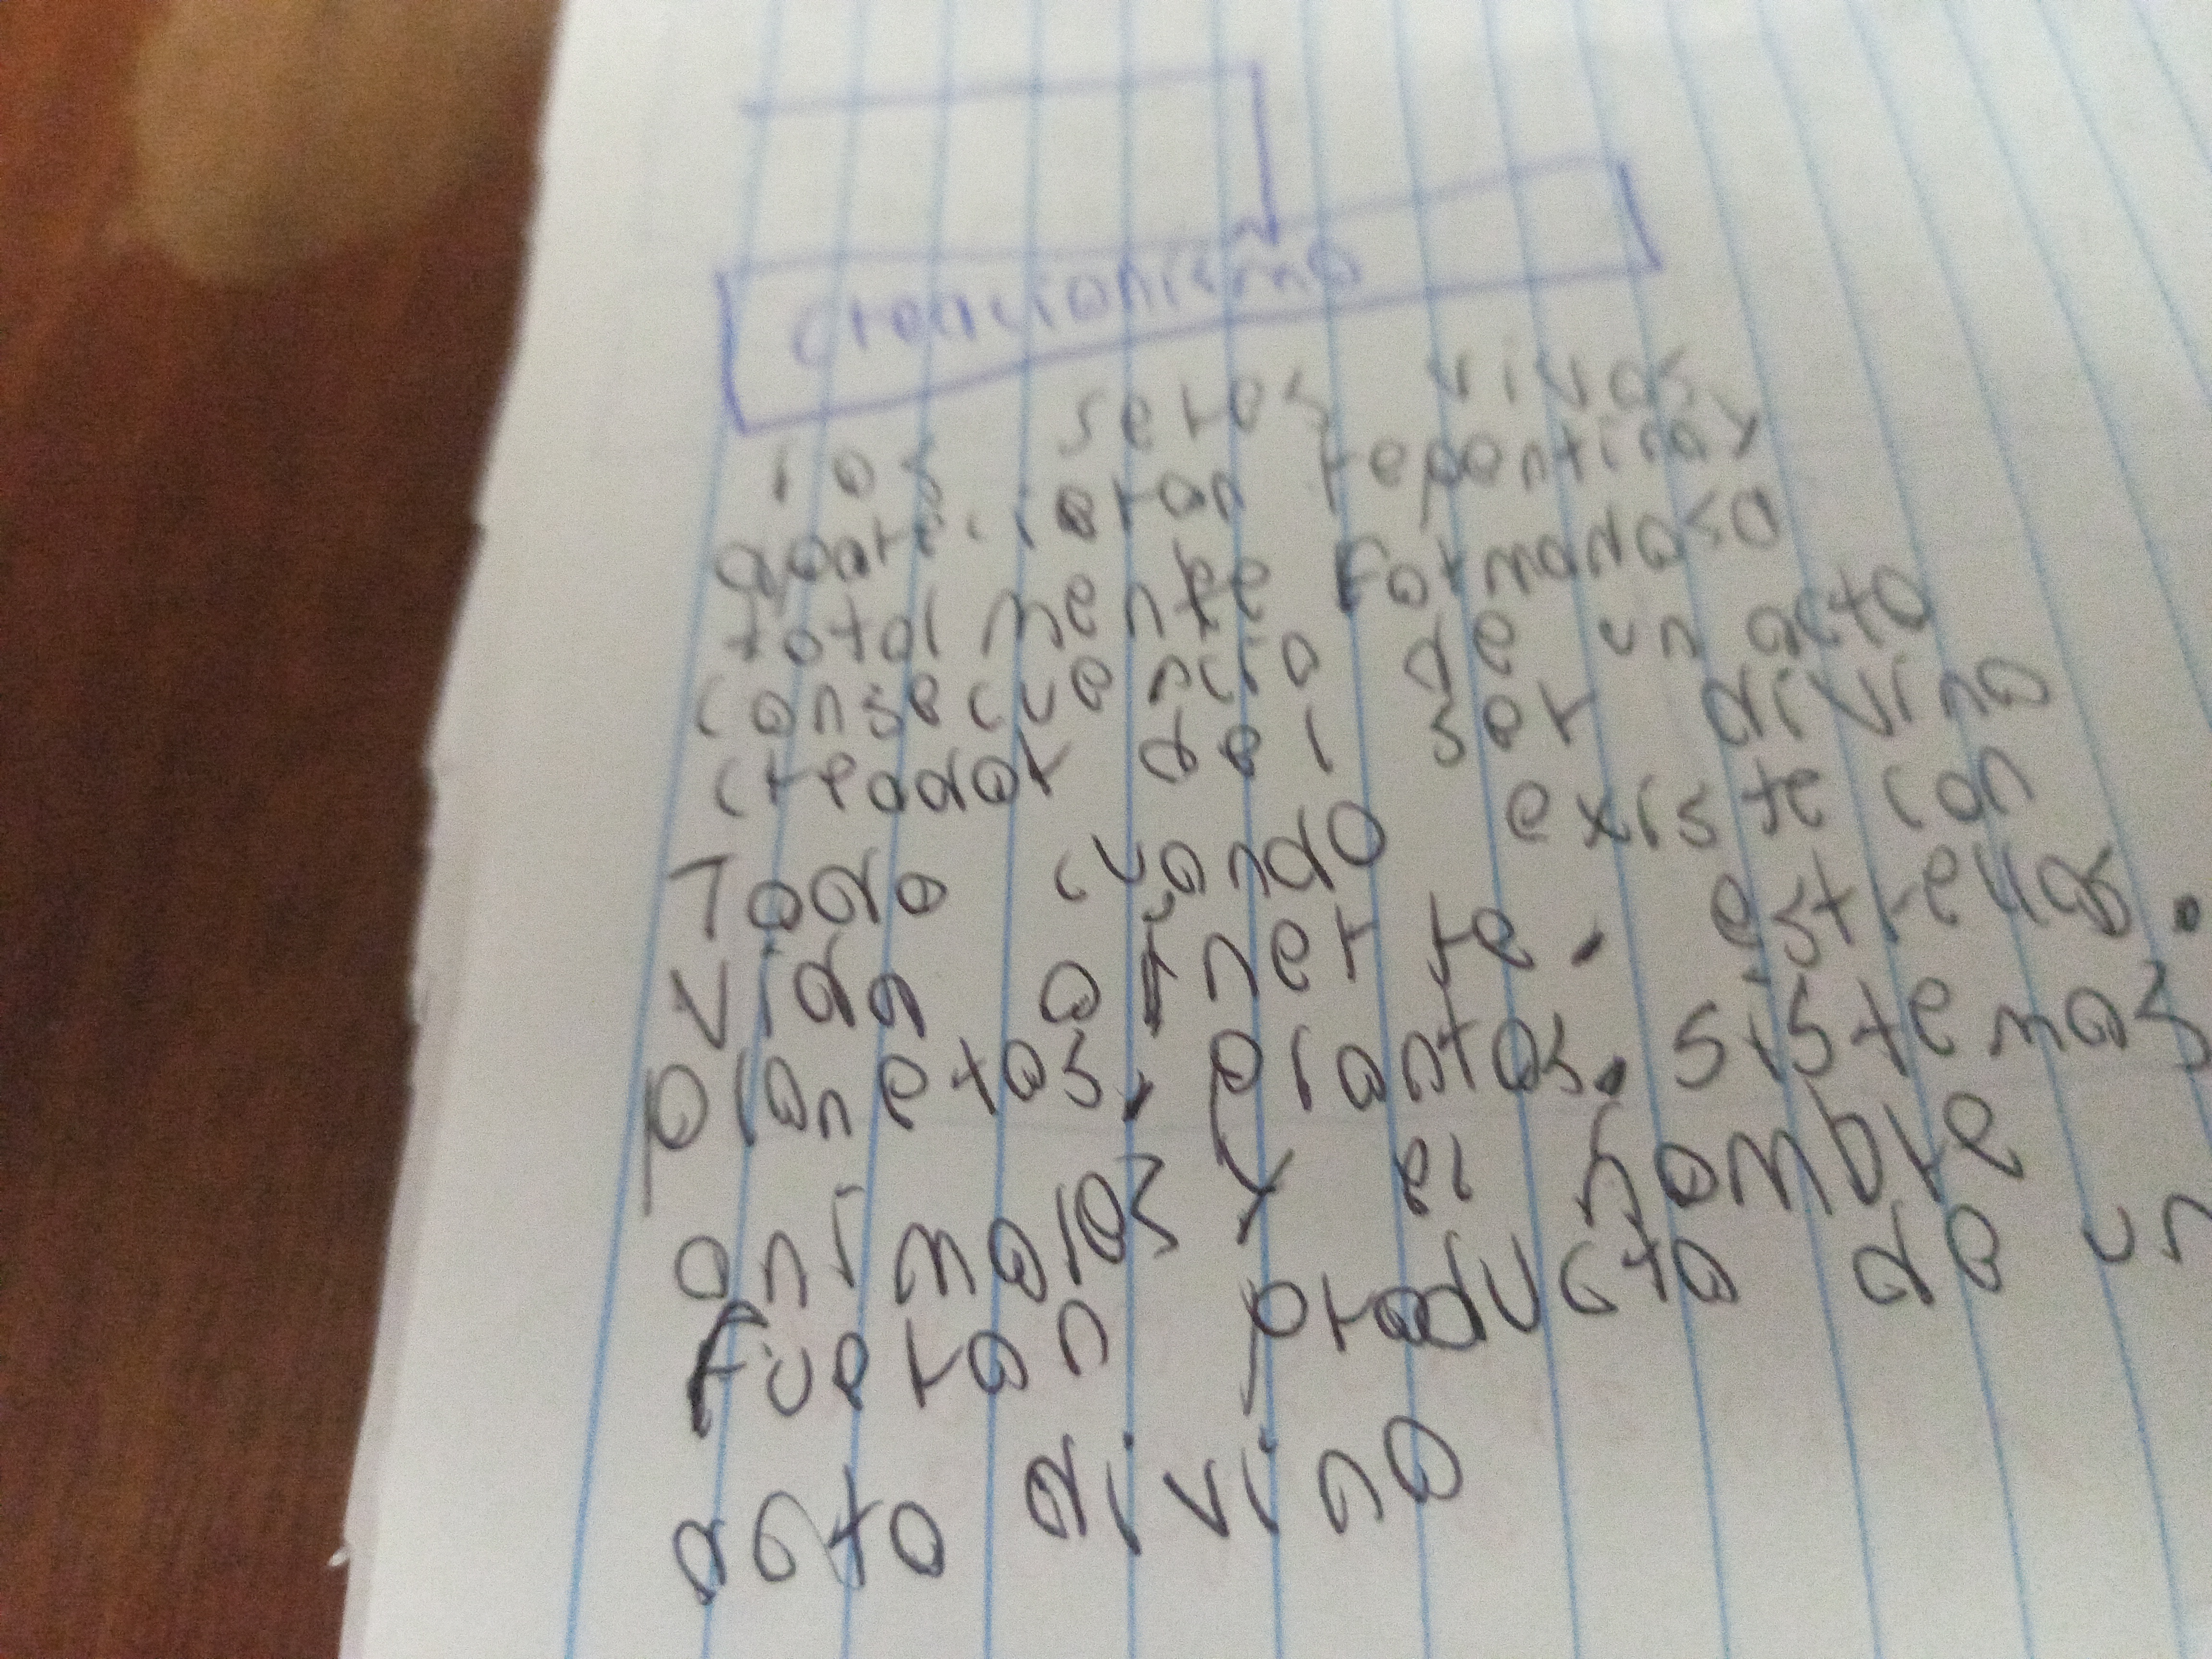 creacionismo
los seres vivos
aparecieran repentina y
totalmente formados a
consecuencia de un acto
creador del ser divino
Todo cuando existe con
vida o inerte. estrellas.
planetas. plantas. sistemas
animales y el hombre
fueran producto de un
acto divino